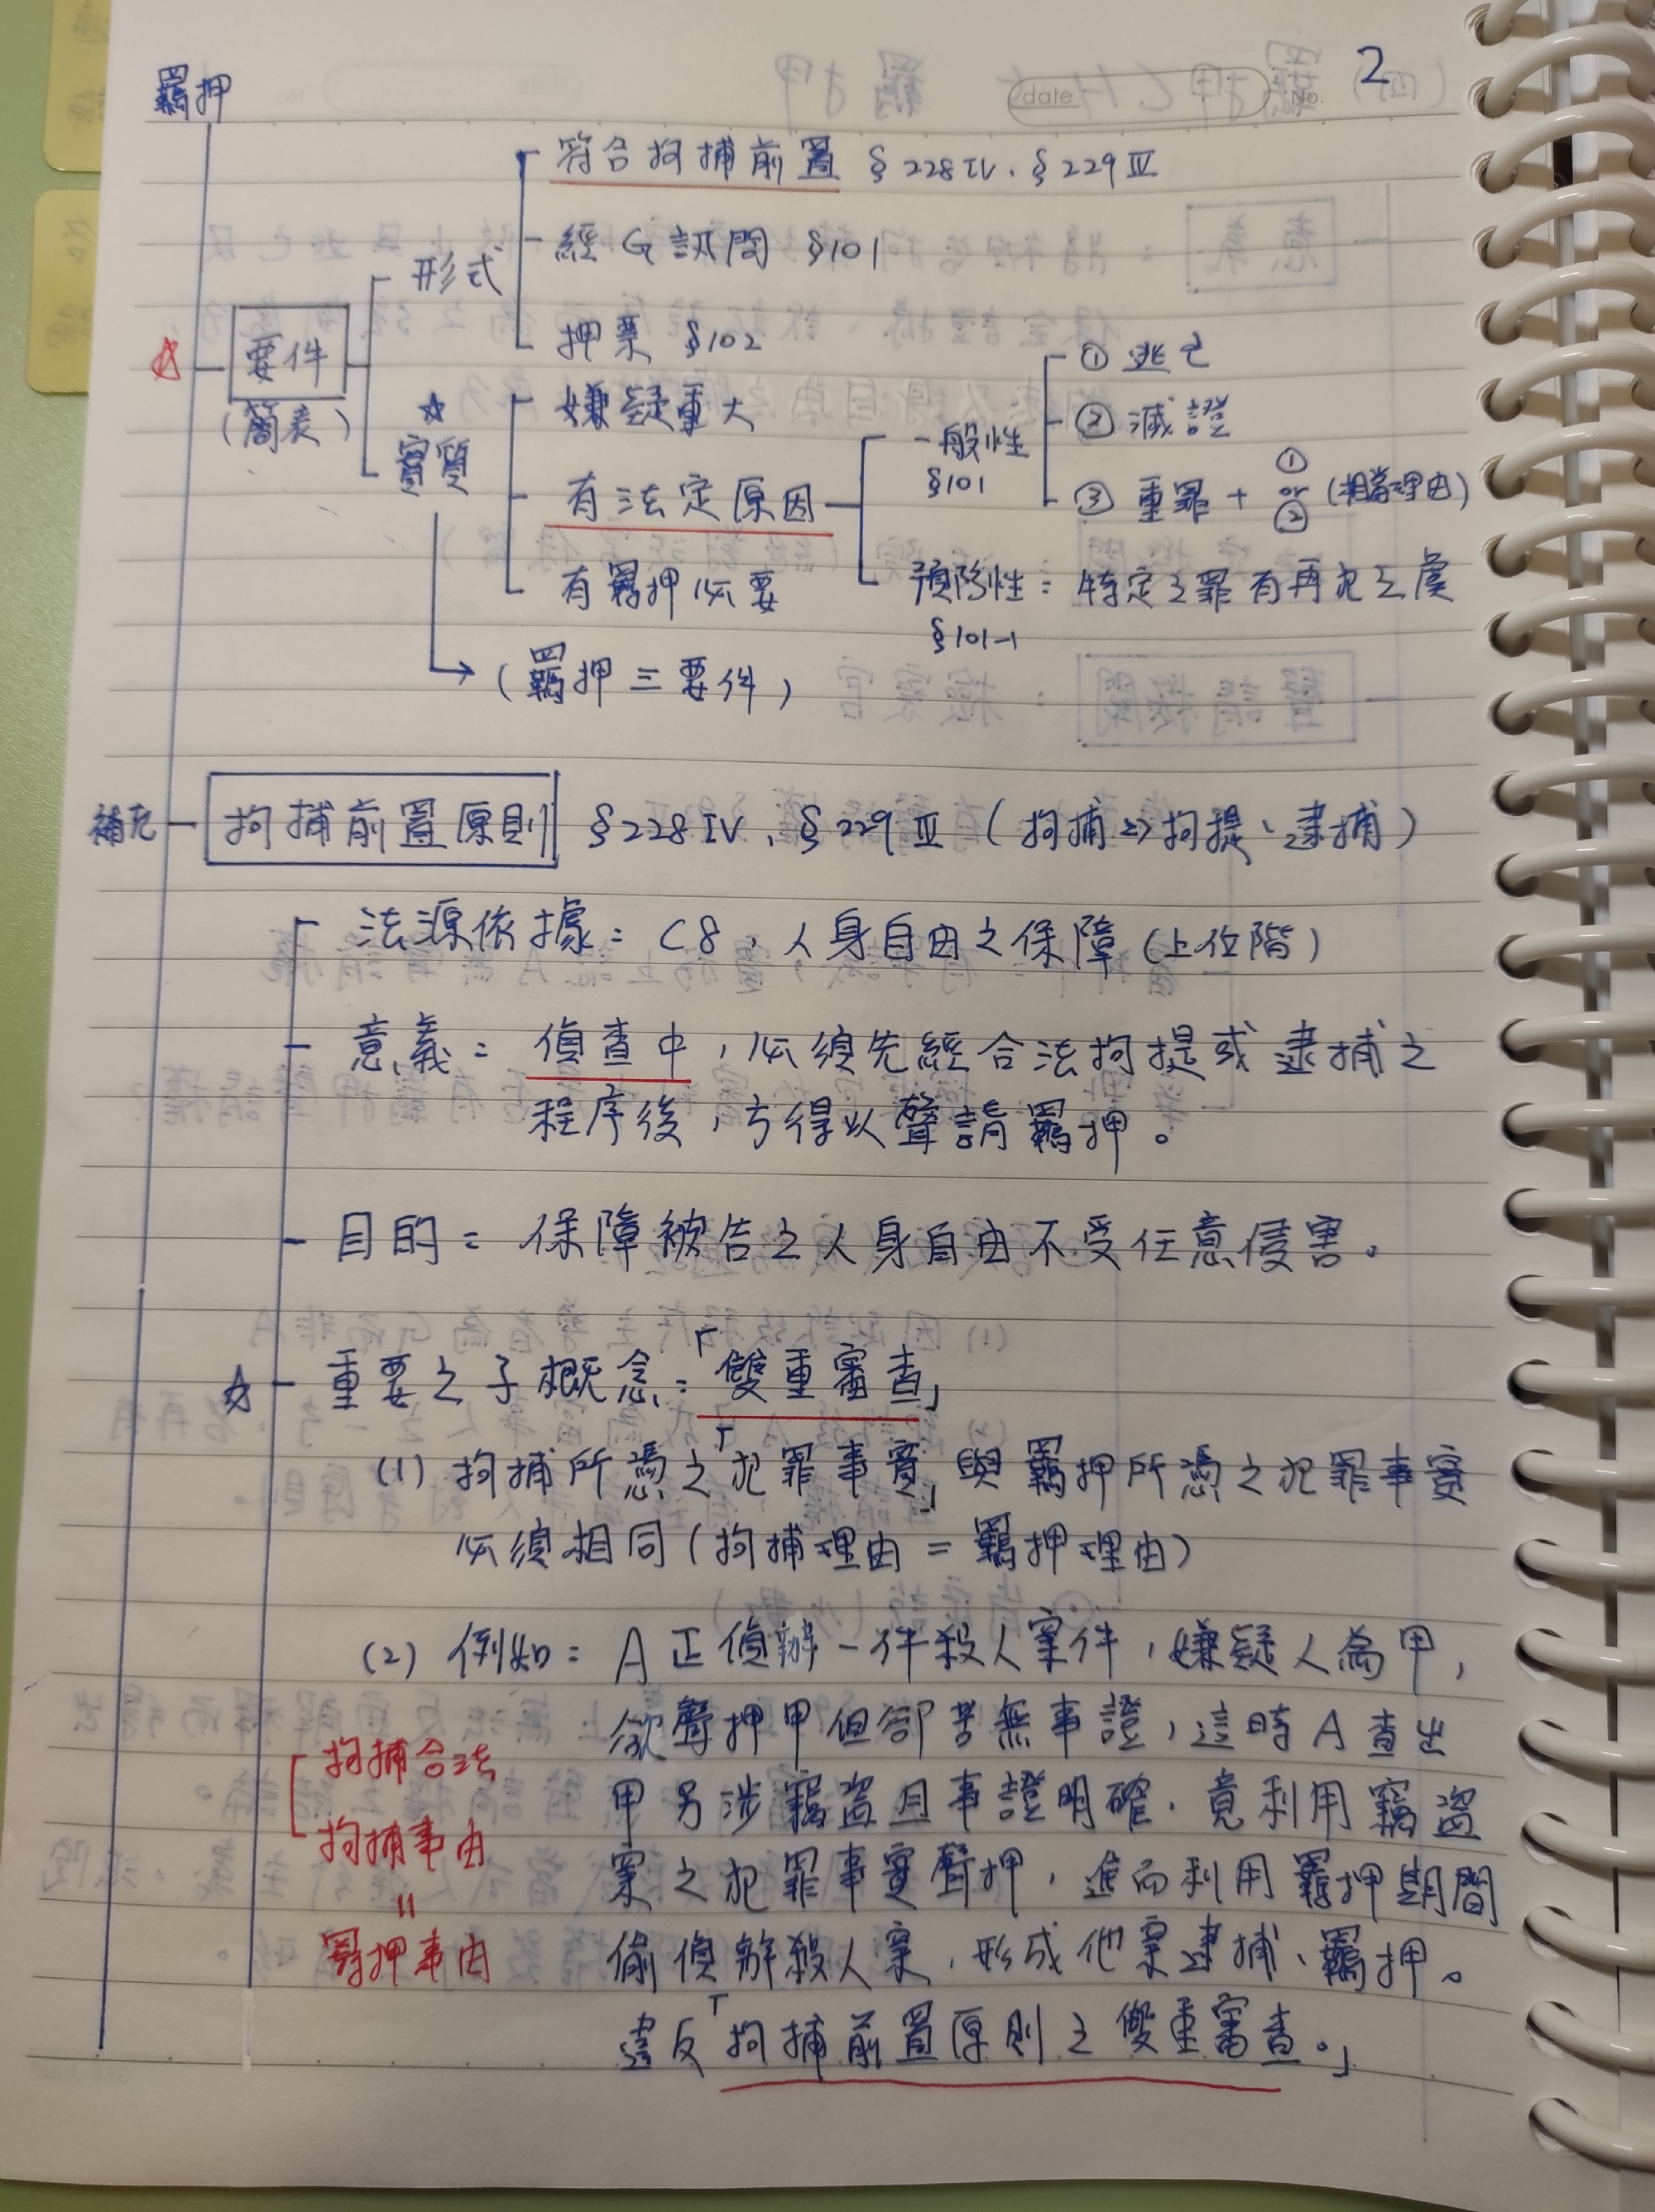 2
date
No.
羈押
符合拘捕前置 §228IV、§229III
經G訊問 §101
形式
押票 §102
☆ 要件
(簡表)
☆
實質
嫌疑重大
有法定原因
有羈押必要
一般性
§101
① 逃亡
② 滅證
③ 重罪 + ① or ② (相當理由)
預防性: 特定之罪有再犯之虞
§101-1
→ (羈押三要件)
補充 拘捕前置原則 §228IV、§229III (拘捕=>拘提、逮捕)
法源依據: C8, 人身自由之保障 (上位階)
意義: 偵查中, 必須先經合法拘提或逮捕之
程序後, 方得以聲請羈押。
目的: 保障被告之人身自由不受任意侵害。
☆ 重要之子概念:「雙重審查」
(1) 拘捕所憑之「犯罪事實」與羈押所憑之犯罪事實
必須相同 (拘捕理由 = 羈押理由)
(2) 例如: A正偵辦一件殺人案件, 嫌疑人為甲,
欲聲押甲但卻苦無事證, 這時A查出
甲另涉竊盜且事證明確, 竟利用竊盜
案之犯罪事實聲押, 進而利用羈押期間
偷偵辦殺人案, 形成他案逮捕、羈押。
違反「拘捕前置原則之雙重審查。」
拘捕合法
拘捕事由
=
羈押事由